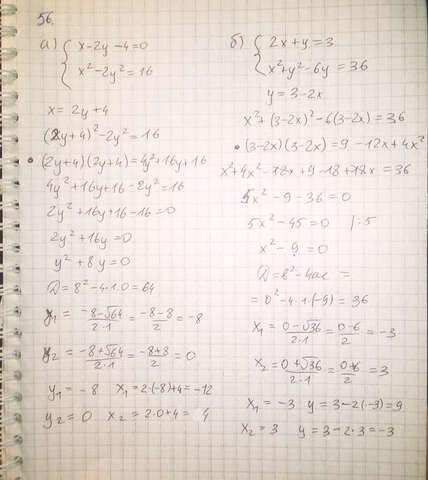 56.
а) { x-2y-4=0
x²-2y²=16
x=2y+4
(2y+4)²-2y²=16
• (2y+4)(2y+4)=4y²+16y+16
4y²+16y+16-2y²=16
2y²+16y+16-16=0
2y²+16y=0
y²+8y=0
D=8²-4·1·0=64
y₁ = (-8-√64)/(2·1) = (-8-8)/2 = -8
y₂ = (-8+√64)/(2·1) = (-8+8)/2 = 0
y₁ = -8 x₁=2·(-8)+4=-12
y₂ = 0 x₂=2·0+4= 4
б) { 2x+y=3
x²+y²-6y=36
y=3-2x
x²+(3-2x)²-6(3-2x)=36
• (3-2x)(3-2x)=9-12x+4x²
x²+4x²-12x+9-18+12x=36
5x²-9-36=0
5x²-45=0 |:5
x²-9=0
D=b²-4ac =
=0²-4·1·(-9)=36
x₁ = (0-√36)/(2·1) = (0-6)/2 = -3
x₂ = (0+√36)/(2·1) = (0+6)/2 = 3
x₁ = -3 y=3-2·(-3)=9
x₂ = 3 y=3-2·3=-3